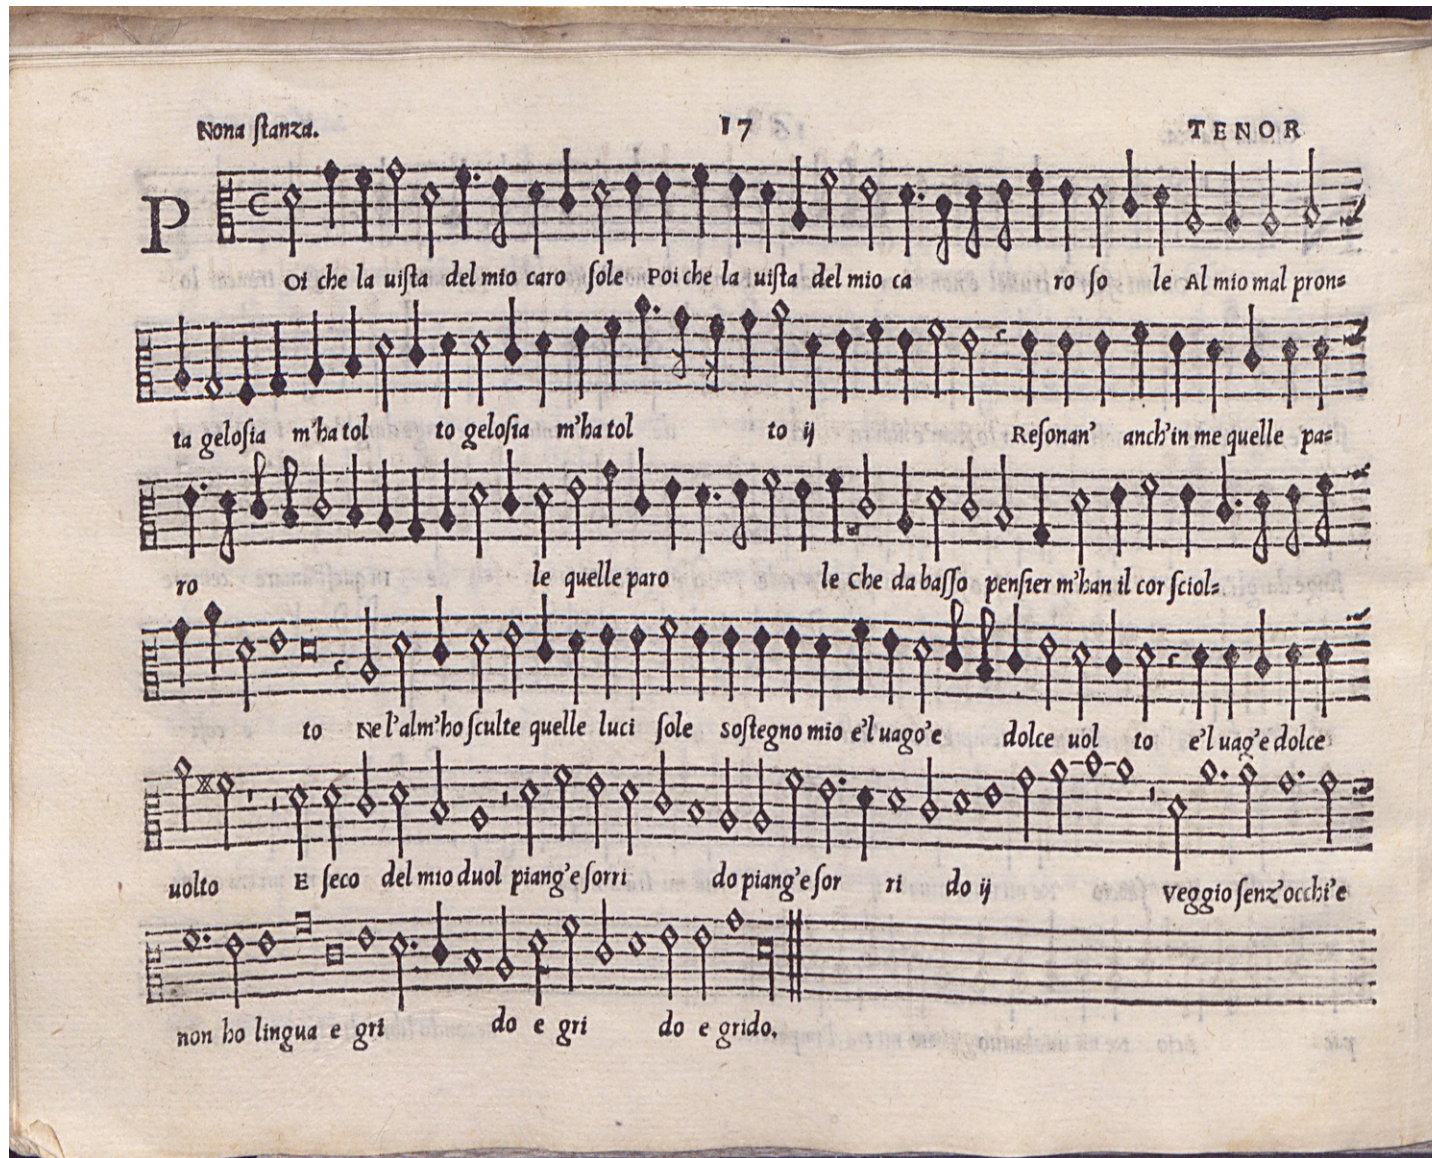 Nona ſtanza. 17 TENOR
P
Oi che la uiſta del mio caro ſole Poi che la uiſta del mio ca ro ſo le Al mio mal pron=
ta geloſia m'ha tol to geloſia m'ha tol to ij Reſonan' anch'in me quelle pa=
ro le quelle paro le Che da baſſo penſier m'han il cor ſciol=
to Ne l'alm'ho ſculte quelle luci ſole Soſtegno mio e'l uago'e dolce uol to e'l uag'e dolce
uolto E ſeco del mio duol piang'e ſorri do piang'e ſor ri do ij Veggio ſenz'occhi'e
non ho lingua e gri do e gri do e grido.